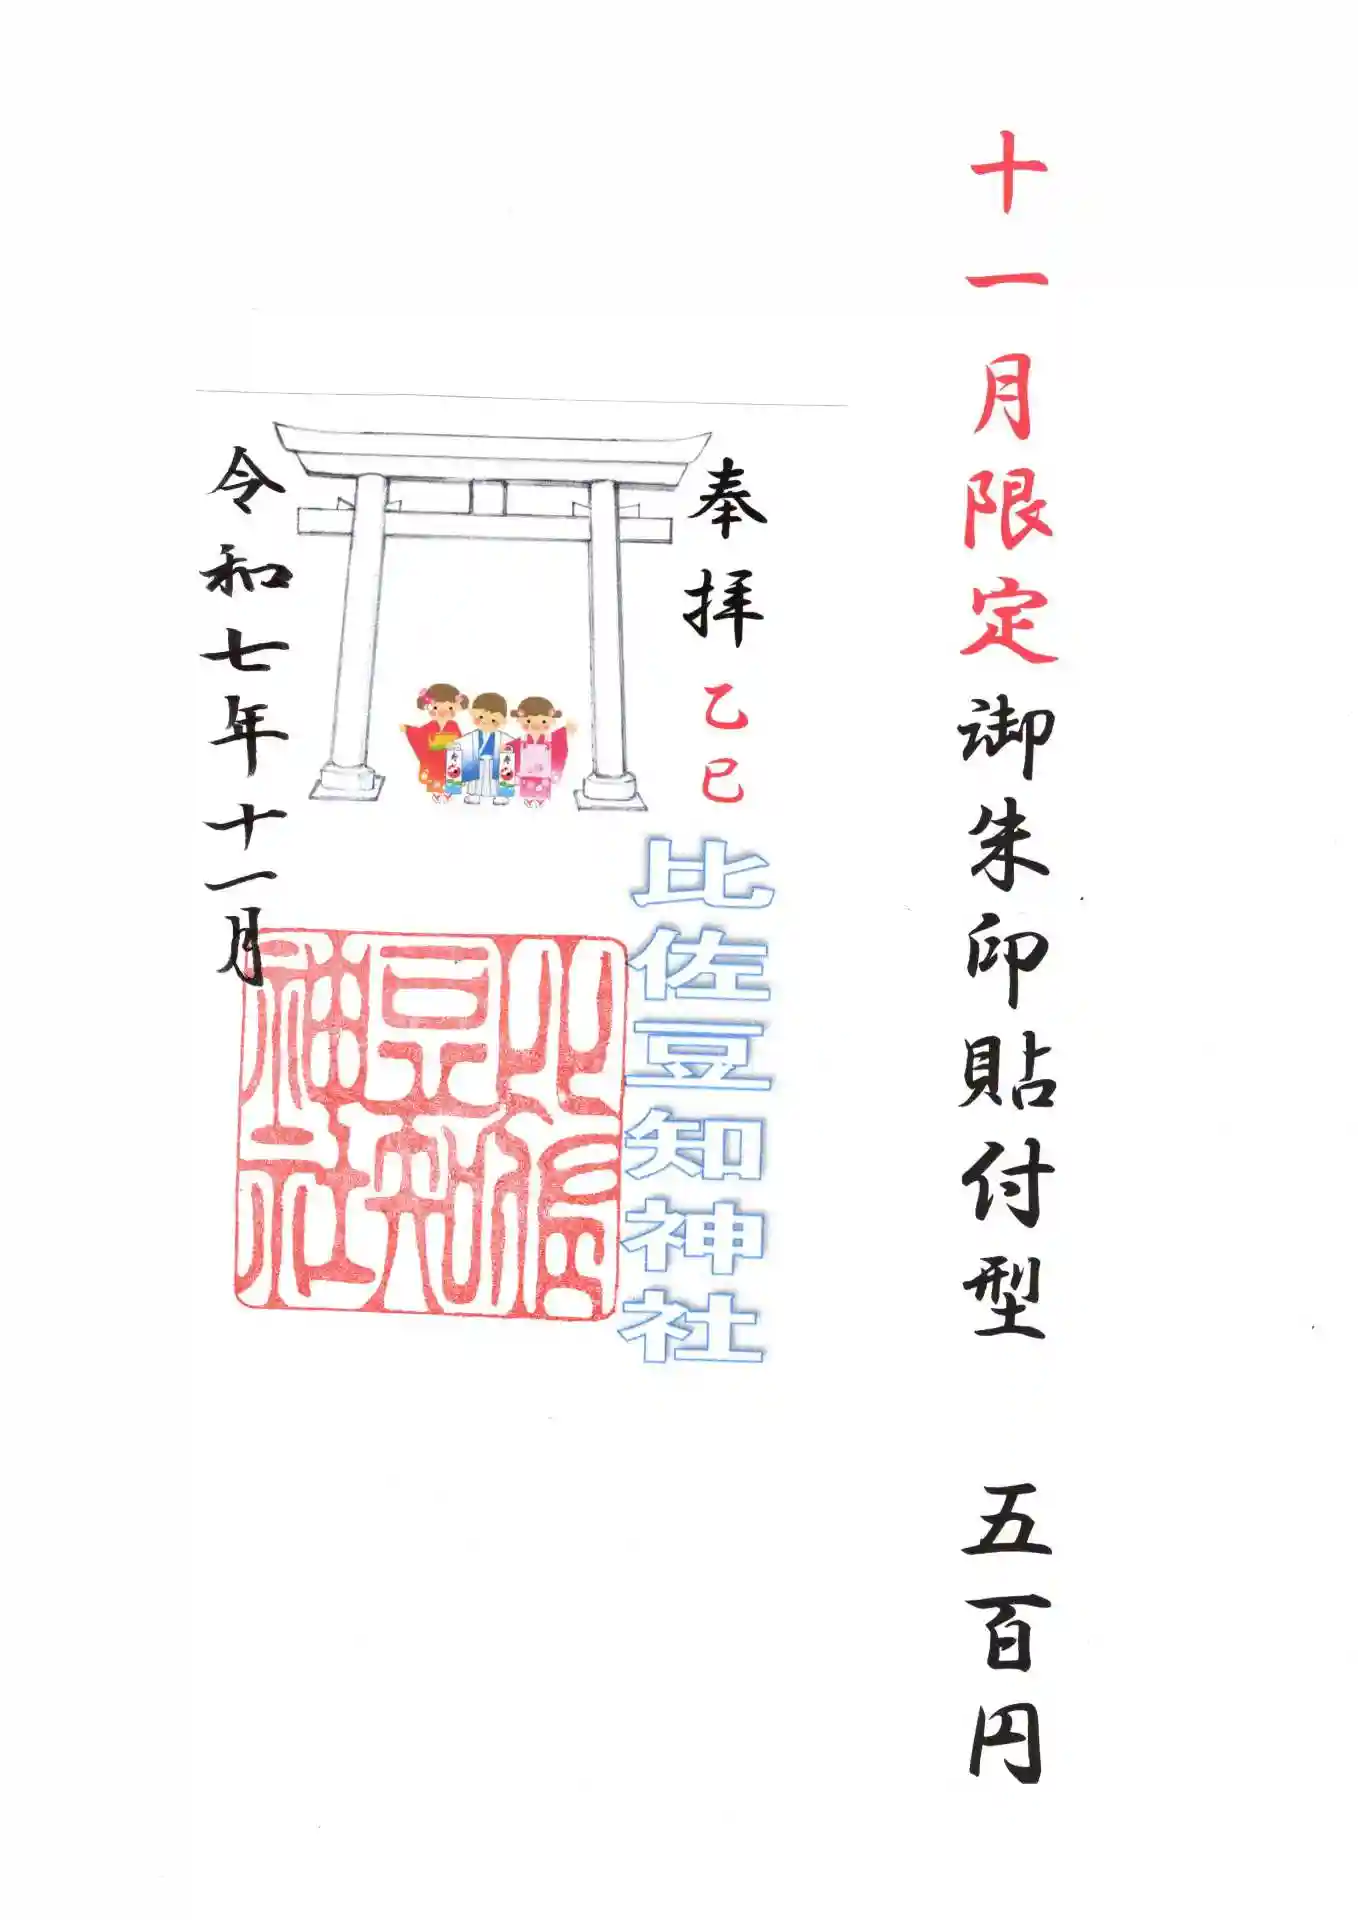 十一月限定御朱印貼付型 五百円
奉拝 乙巳
比佐豆知神社
比佐豆知神社
令和七年十一月